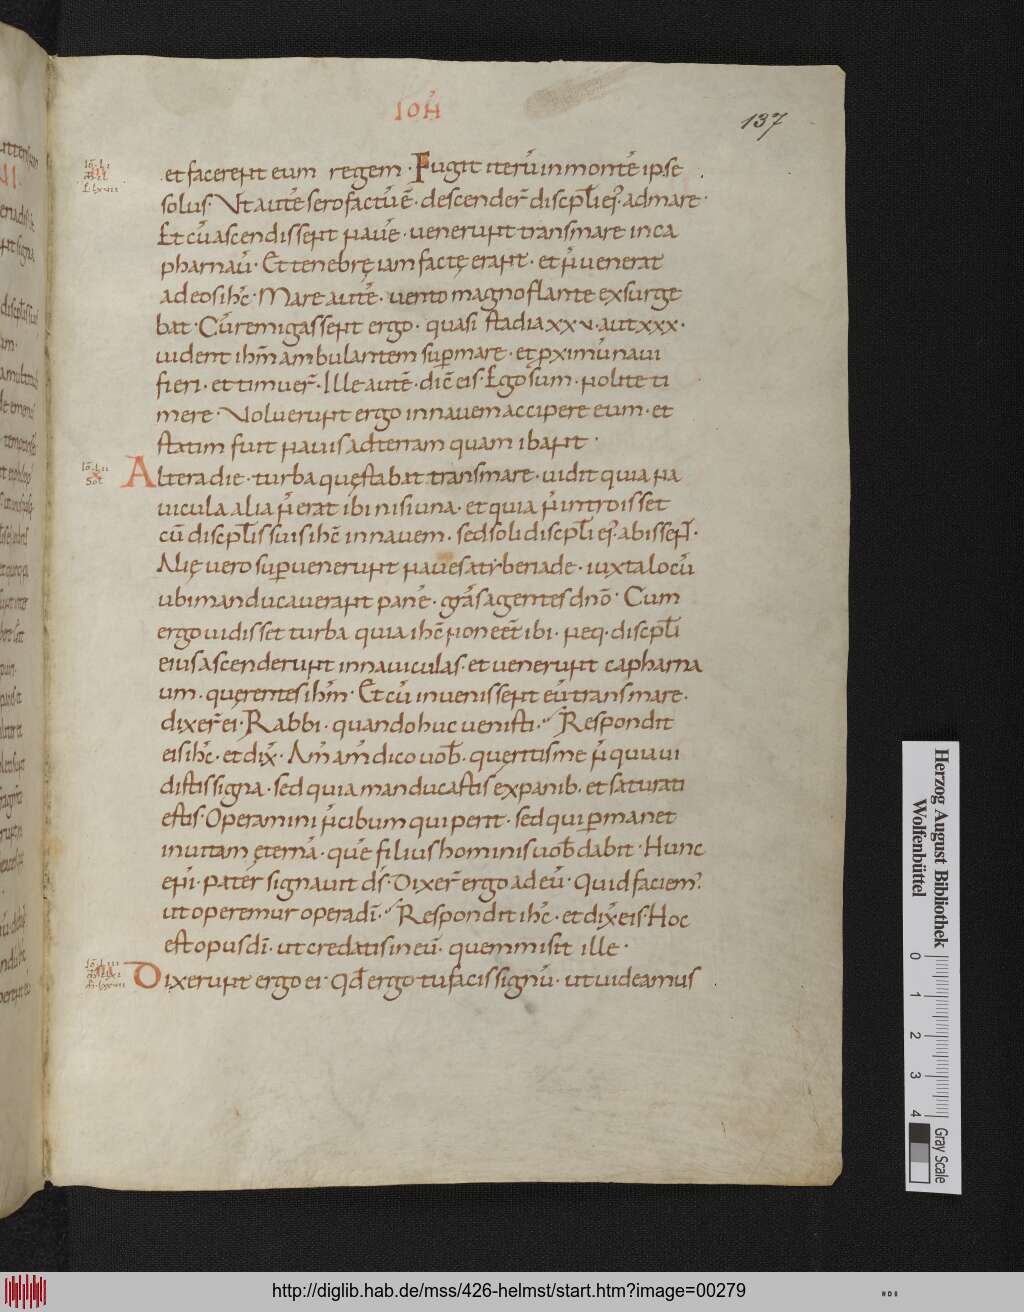 IOH̄
137
et facerent eum regem · Fugit iterū in montē ipse
solus · Ut autē sero factū ē · descender̄ discipl̄i ei᷒ · ad mare ·
Et cū ascendissent navē · venerunt trans mare in ca
pharnaū · Et tenebrę iam factę erant · et n̄ venerat
ad eos ih̄c · Mare autē · vento magno flante exsurge
bat · Cū remigassent ergo · quasi stadia xxv · aut xxx ·
vident ih̄m ambulantem sup mare · et pximū navi
fieri · et timuer̄ · Ille autē · dic̄ eis · Ego sum · nolite ti
mere · Voluerunt ergo in navem accipere eum · et
statim fuit navis ad terram quam ibant ·
Altera die · turba quę stabat trans mare · vidit quia na
vicula alia n̄ erat ibi nisi una · et quia n̄ introisset
cū discipl̄is suis ih̄c in navem · sed soli discipl̄i ei᷒ · abissen̄t ·
Alię vero supvenerunt naves a tyberiade · iuxta locū
ubi manducaverant panē · grās agentes dn̄o · Cum
ergo vidisset turba quia ih̄c non eēt ibi · neq · discipl̄i
eius ascenderunt in naviculas · et venerunt capharna
um · querentes ih̄m · Et cū invenissent eū trans mare ·
dixer̄ ei · Rabbi · quando huc venisti · Respondit
eis ih̄c · et dix̄ · Am̄ am̄ dico vob̄ · queritis me n̄ quia vi
distis signa · sed quia manducastis ex panib · et saturati
estis · Operamini n̄ cibum qui perit · sed qui pmanet
in vitam ęternā · quē filius hominis vob̄ dabit · Hunc
eni᷒ · pater signavit d̄s · Dixer̄ ergo ad eū · Quid faciem᷒
ut operemur opera dī · Respondit ih̄c · et dix̄ eis Hoc
est opus dī · ut credatis in eū · quem misit ille ·
Dixerunt ergo ei · Qd̄ ergo tu facis signū · ut videamus
Herzog August Bibliothek
Wolfenbüttel
0 1 2 3 4
Gray Scale
http://diglib.hab.de/mss/426-helmst/start.htm?image=00279